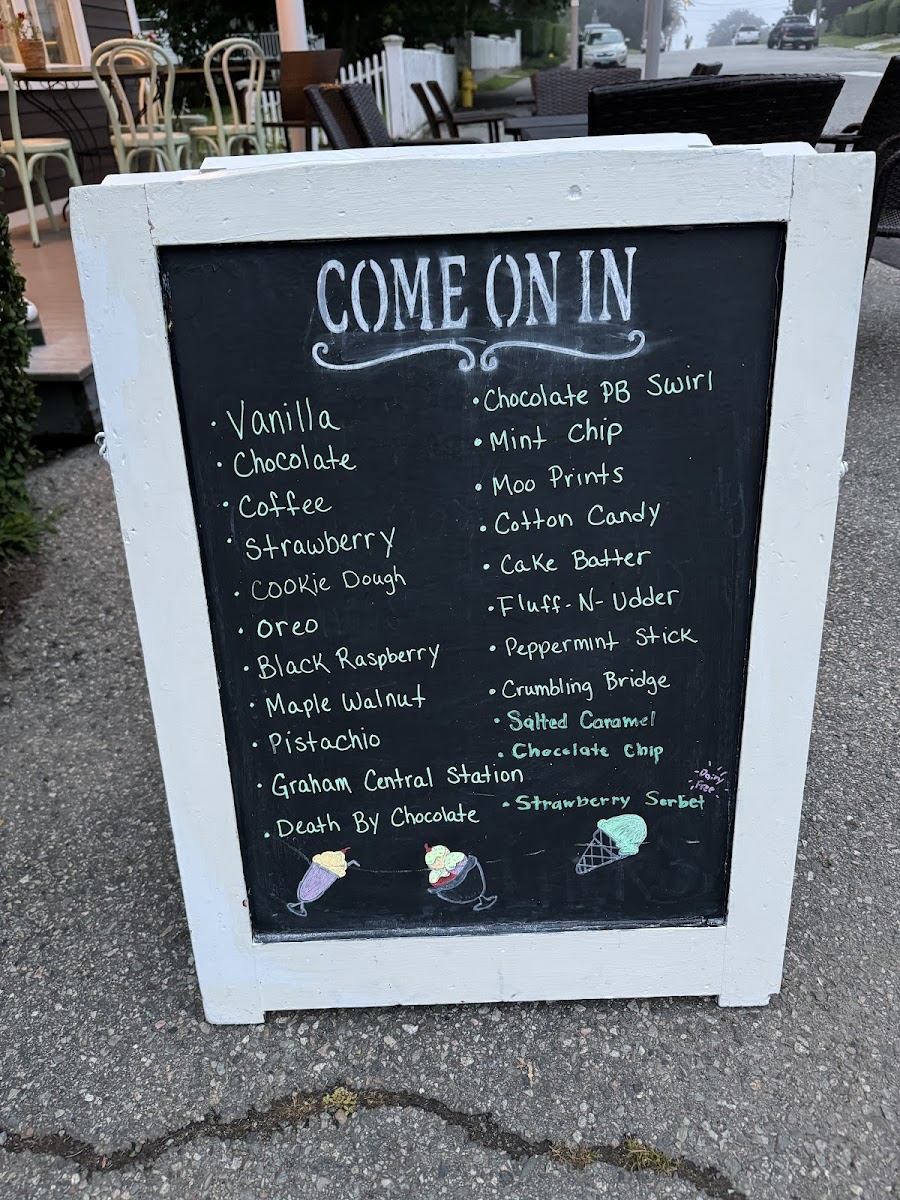 COME ON IN
· Vanilla
· Chocolate
· Coffee
· Strawberry
· Cookie Dough
· Oreo
· Black Raspberry
· Maple Walnut
· Pistachio
· Graham Central Station
· Death By Chocolate
· Chocolate PB Swirl
· Mint Chip
· Moo Prints
· Cotton Candy
· Cake Batter
· Fluff-N-Udder
· Peppermint Stick
· Crumbling Bridge
· Salted Caramel
· Chocolate Chip
· Strawberry Sorbet
Dairy
Free